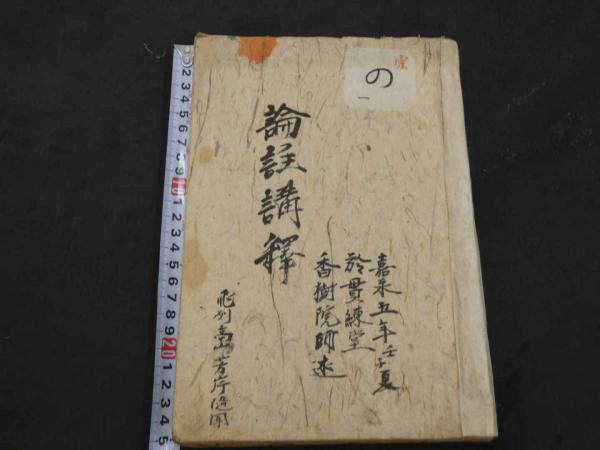 の
一
論註講釋
嘉永五年壬子夏
於貫練堂
香樹院師述
芳岸随聞
2 3 4 5 6 7 8 9 10 1 2 3 4 5 6 7 8 9 20 1 2 3 4 5